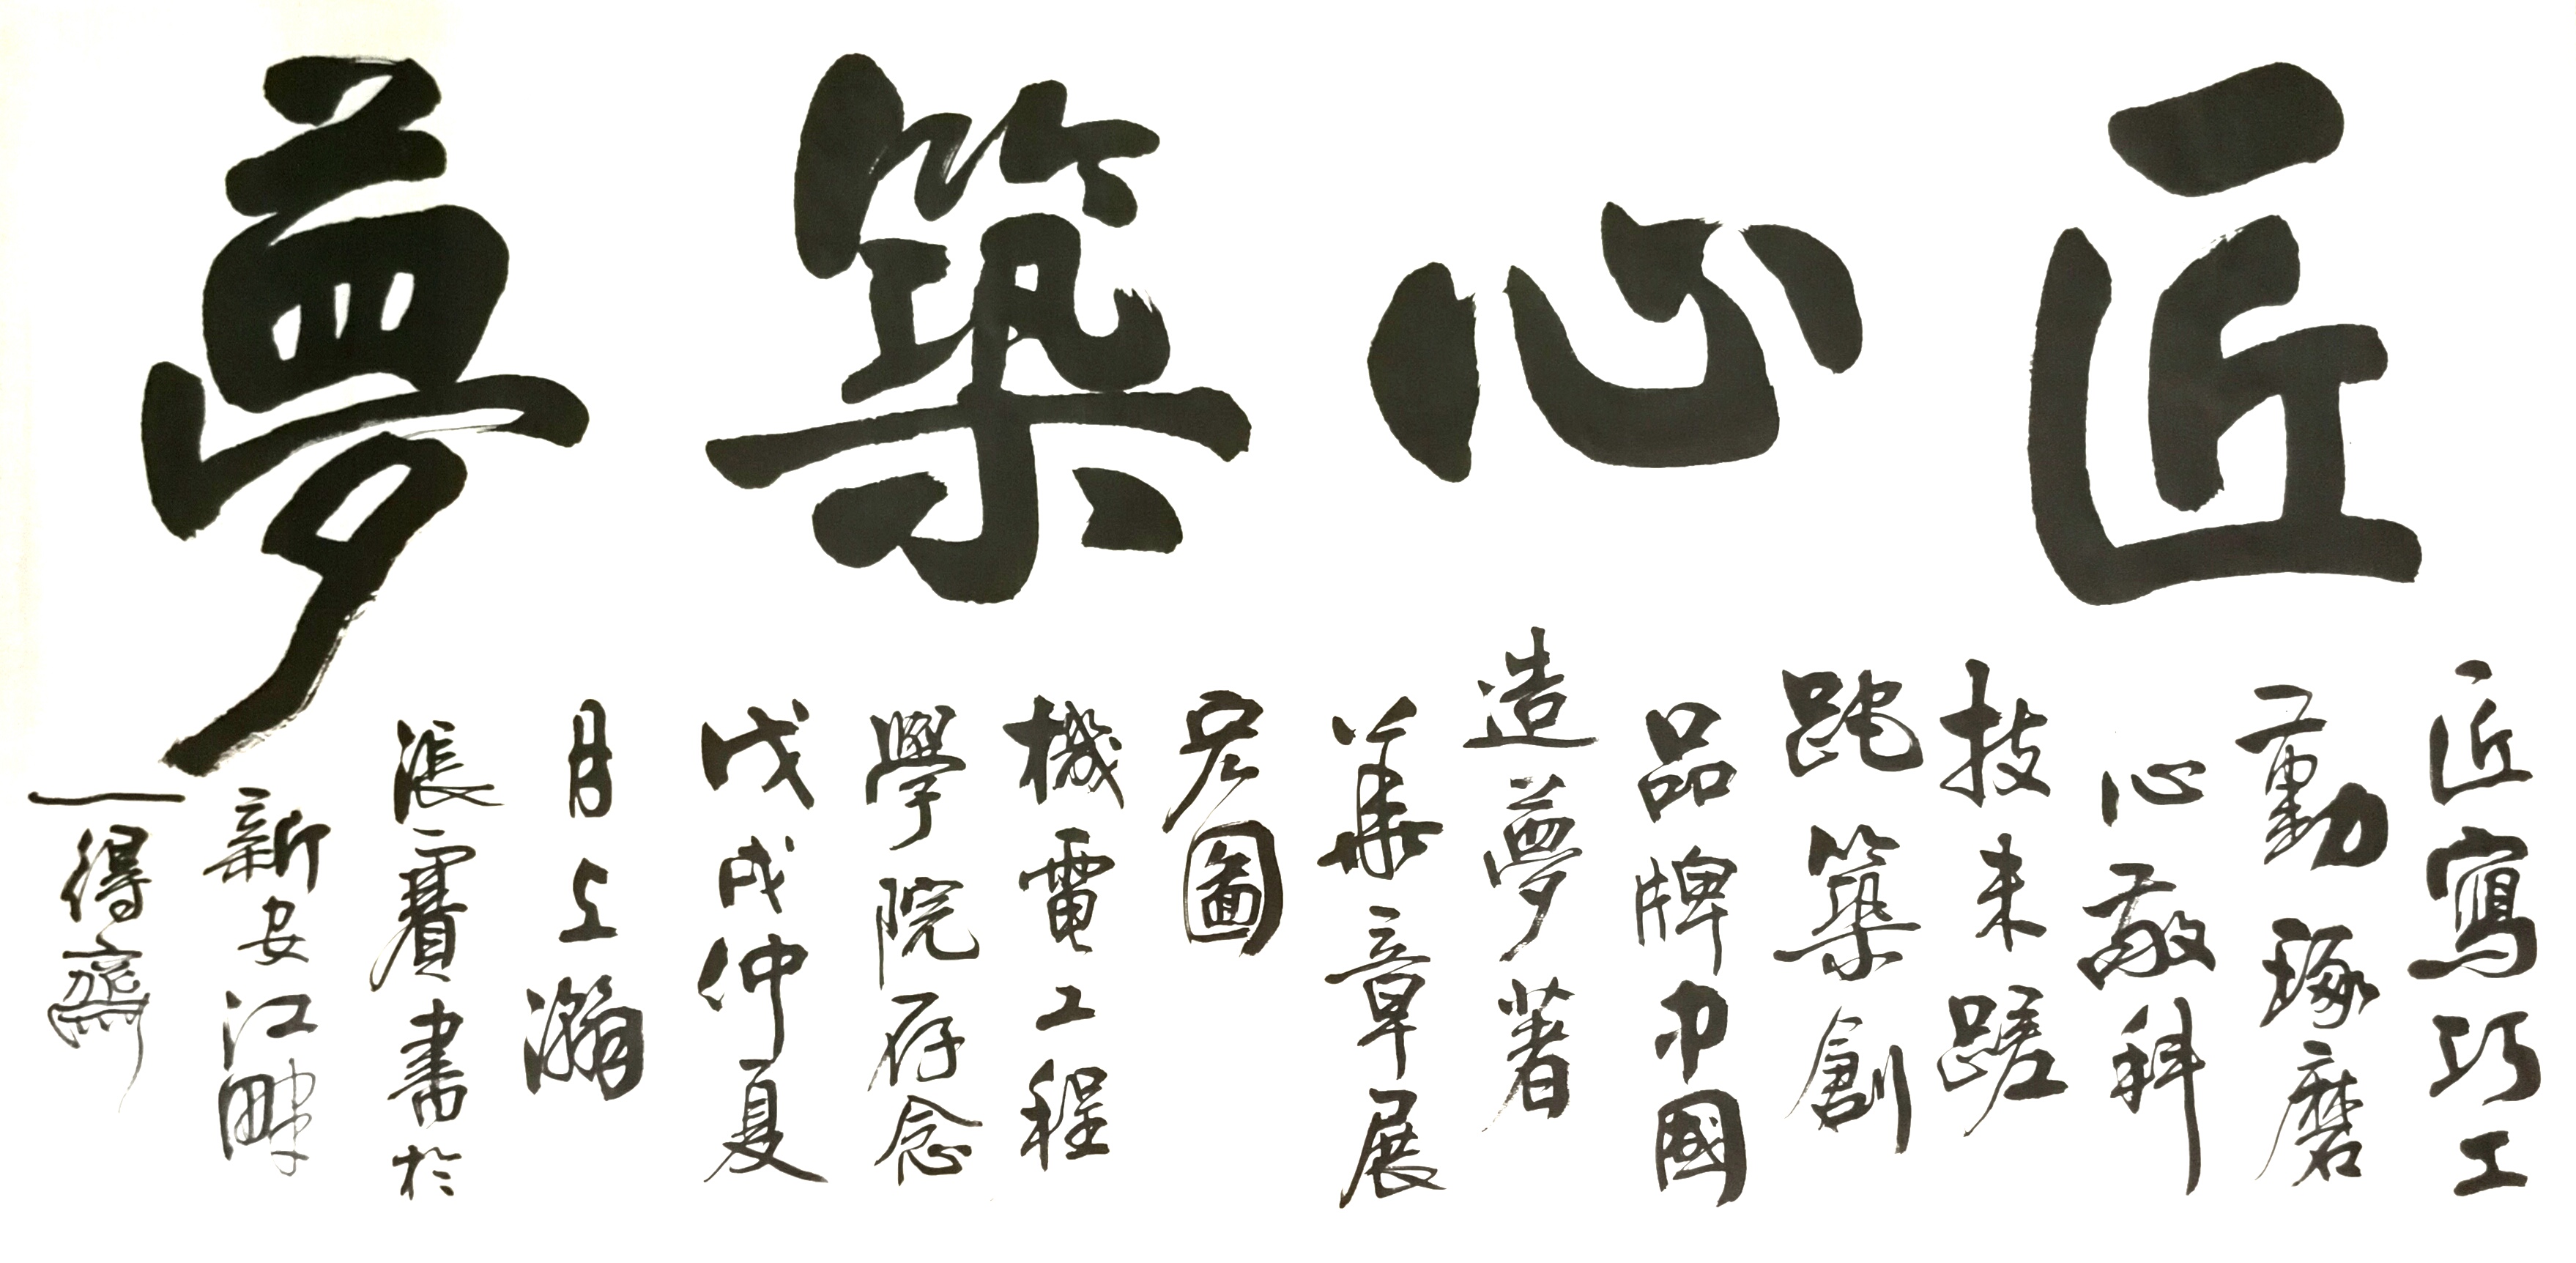 匠心築夢
匠寫巧工
勤琢磨
心敬科
技未蹉
跎築創
品牌中國
造夢著
華章展
宏圖
機電工程
學院存念
戊戌仲夏
月上瀚
漲賽書於
新安江畔
一得齋